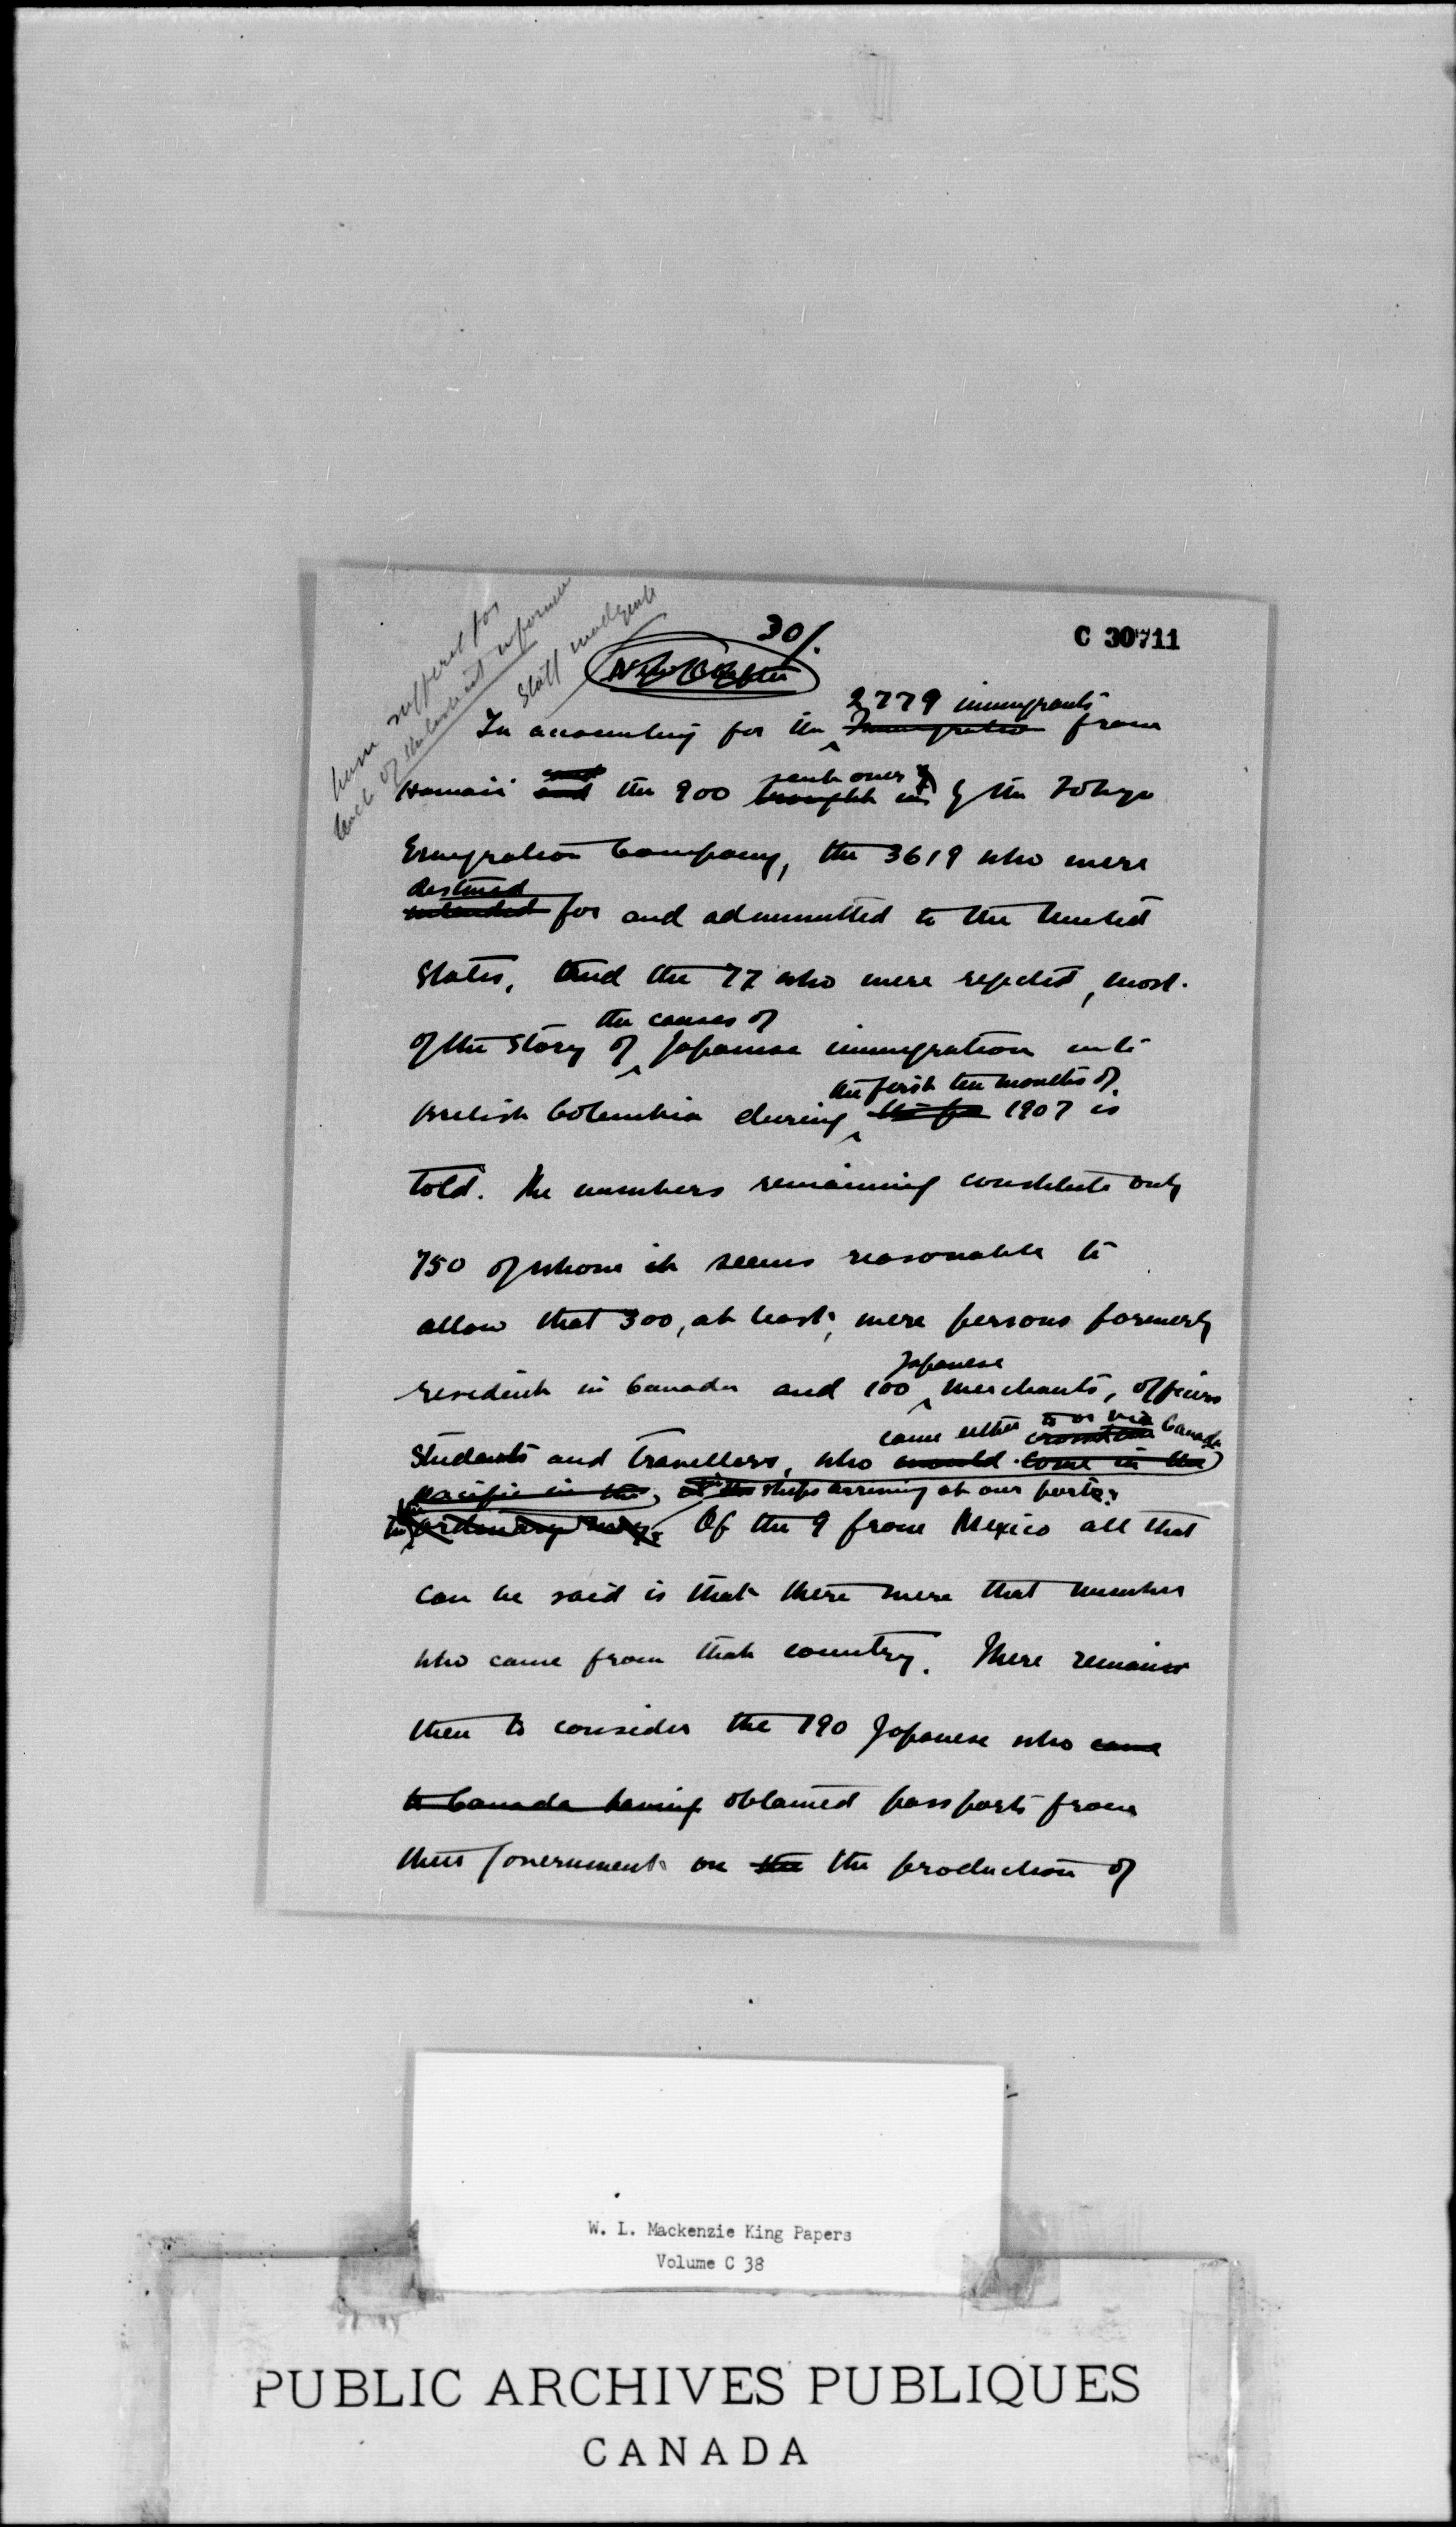 30/.
C 30711
New Chapter
2779 immigrants
In accounting for the Immigration from
and sent over
Hawaii and the 900 brought in by the Tokyo
Emigration Company, the 3619 who were
destined
intended for and admmitted to the United
States, and the 77 who were rejected, most
the causes of
of the story of Japanese immigration into
the first ten months of
British Columbia during the fi 1907 is
told. The numbers remaining constitute only
750 of whom it seems reasonable to
allow that 300, at least, were persons formerly
Japanese
resident in Canada and 100 merchants, officers
came either to or via Canada
Students and Travellers, who would come in the
Pacific in the ships arriving at our ports.
ordinary way. Of the 9 from Mexico all that
can be said is that there were that number
who came from that country. There remains
then to consider the 190 Japanese who came
to Canada having obtained passports from
their Government on the the production of
W. L. Mackenzie King Papers
Volume C 38
PUBLIC ARCHIVES PUBLIQUES
CANADA